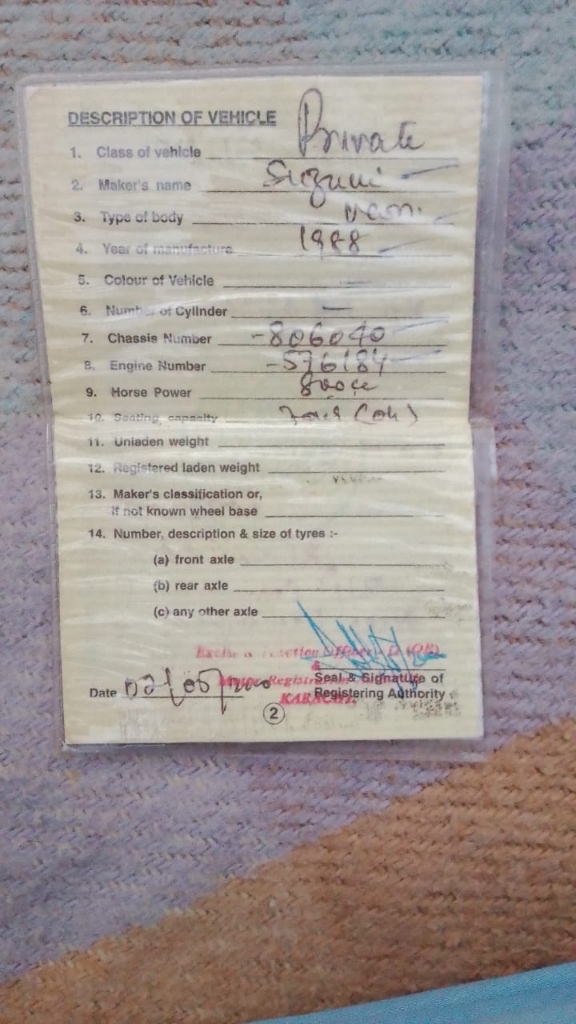 DESCRIPTION OF VEHICLE
1. Class of vehicle Private
2. Maker's name Suzuki
3. Type of body Van.
4. Year of manufacture 1988
5. Colour of Vehicle
6. Number of Cylinder —
7. Chassis Number -806040
8. Engine Number -576184
9. Horse Power 800cc
10. Seating capacity Four (04)
11. Unladen weight
12. Registered laden weight
13. Maker's classification or,
if not known wheel base
14. Number, description & size of tyres :-
(a) front axle
(b) rear axle
(c) any other axle
Excise & Taxation Officer
&
Motor Registration
Seal & Signature of
Date 02/05/
KARACHI.
Registering Authority
2